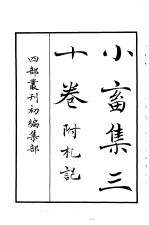 小畜集三
十卷 附札記
四部叢刊初編集部